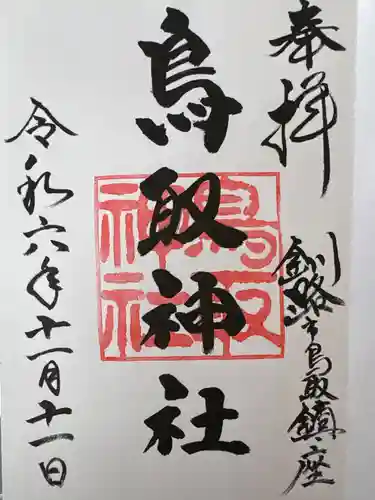 奉拝
釧路市鳥取鎮座
鳥取神社
鳥取神社
令和六年十一月十一日